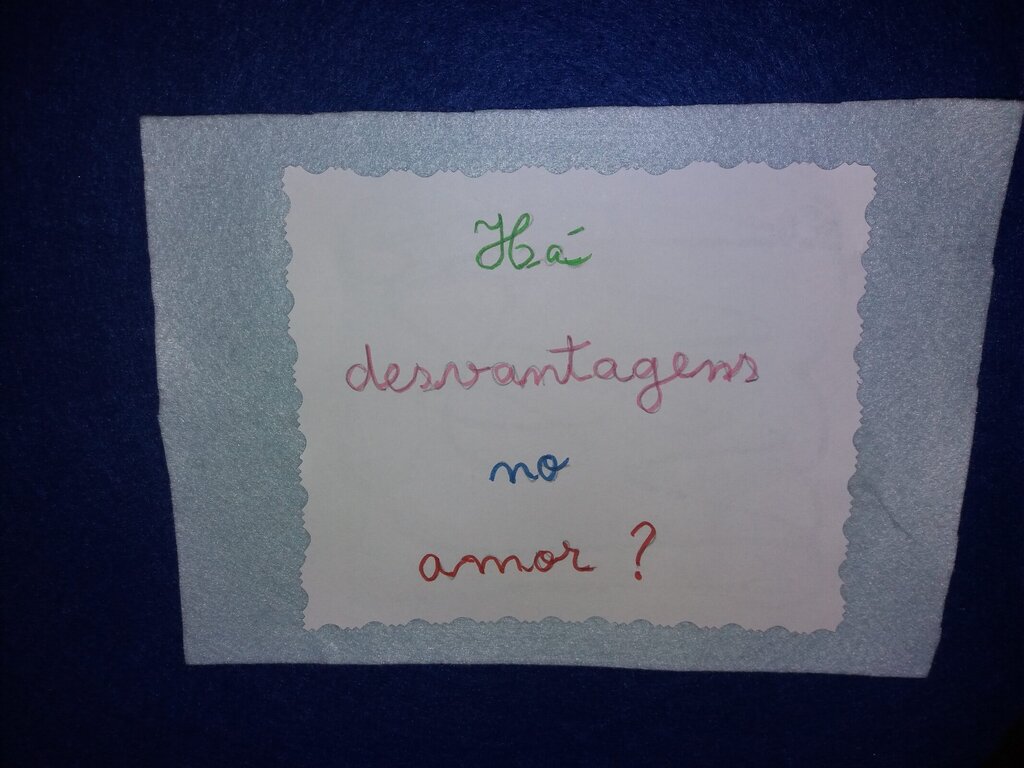 Há
desvantagens
no
amor ?